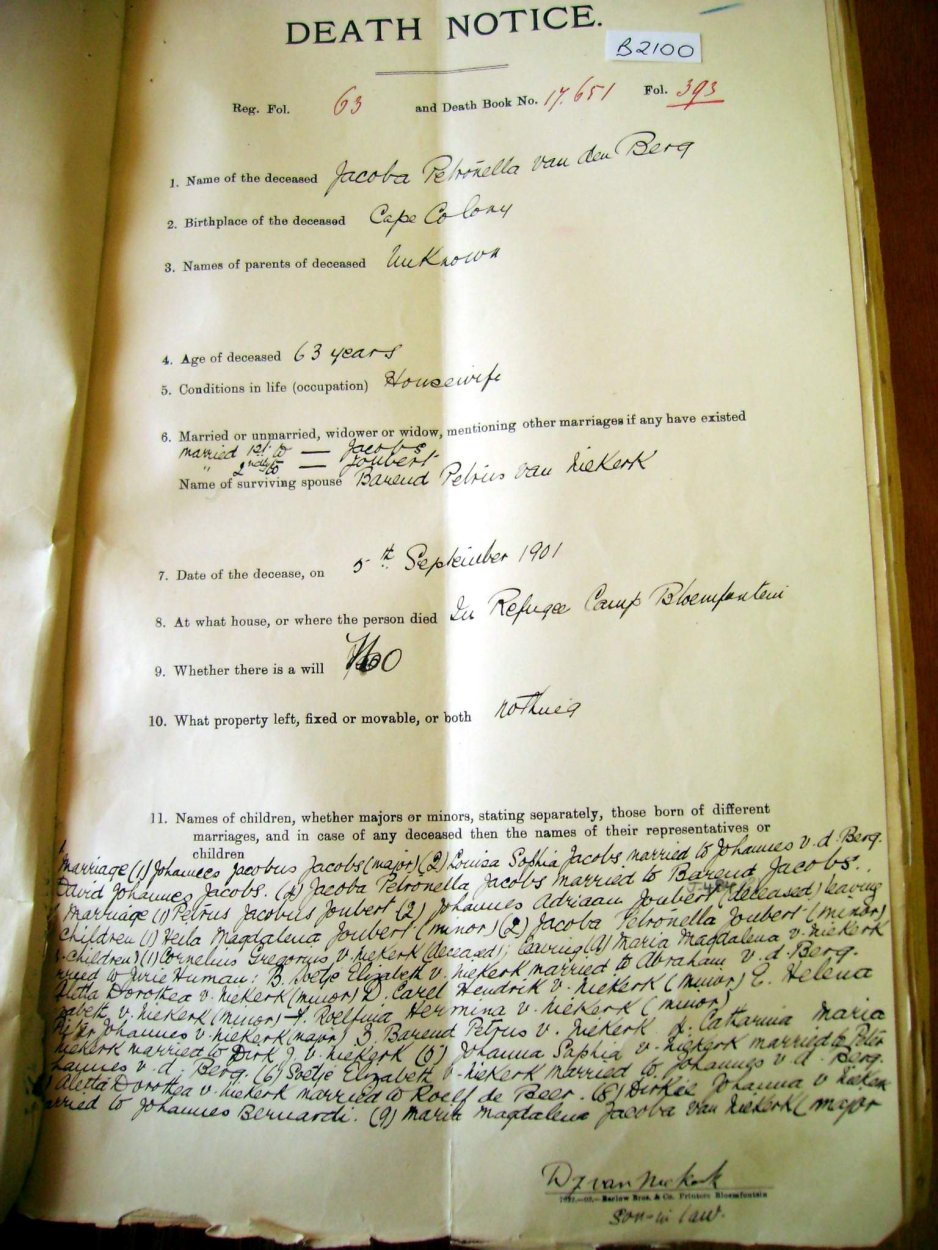 DEATH NOTICE.
B2100
Reg. Fol. 63 and Death Book No. 17.651 Fol. 393
1. Name of the deceased Jacoba Petronella van den Berg
2. Birthplace of the deceased Cape Colony
3. Names of parents of deceased Unknown
4. Age of deceased 63 years
5. Conditions in life (occupation) Housewife
6. Married or unmarried, widower or widow, mentioning other marriages if any have existed
married 1st to — Jacobs
" 2nd to — Joubert
Name of surviving spouse Barend Petrus van Niekerk
7. Date of the decease, on 5th September 1901
8. At what house, or where the person died In Refugee Camp Bloemfontein
9. Whether there is a will No
10. What property left, fixed or movable, or both nothing
11. Names of children, whether majors or minors, stating separately, those born of different
marriages, and in case of any deceased then the names of their representatives or
children
marriage (1) Johannes Jacobus Jacobs (major) (2) Louisa Sophia Jacobs married to Johannes v. d. Berg.
David Johannes Jacobs. Jacoba Petronella Jacobs married to Barend Jacobs.
Marriage (1) Petrus Jacobus Joubert (2) Johannes Adriaan Joubert (deceased) leaving
children (1) Heila Magdalena Joubert (minor) (2) Jacoba Petronella Joubert (minor)
children) (1) Cornelius Gregorius v. niekerk (deceased); leaving Maria Magdalena v. niekerk
married to Jurie Human; B. Elizabeth v. niekerk married to Abraham v. d. Berg.
Aletta Dorothea v. niekerk (minor) D. Carel Hendrik v. niekerk (minor) E. Helena
v. niekerk (minor) Roelfina Hermina v. niekerk (minor)
Johannes v. niekerk (major) 3. Barend Petrus v. niekerk 4. Catharina Maria
niekerk married to Dirk J. v. niekerk (5) Johanna Sophia v. niekerk married to Peter
v. d. Berg. (6) Elizabeth v. niekerk married to Johannes v. d. Berg.
Aletta Dorothea v. niekerk married to Roelf de Beer. (8) Dirkie Johanna v niekerk
married to Johannes Bernardi. (9) maria magdalena Jacoba van Niekerk (major
D J van Niekerk
Barlow Bros. & Co. Printers Bloemfontein
Son-in law.